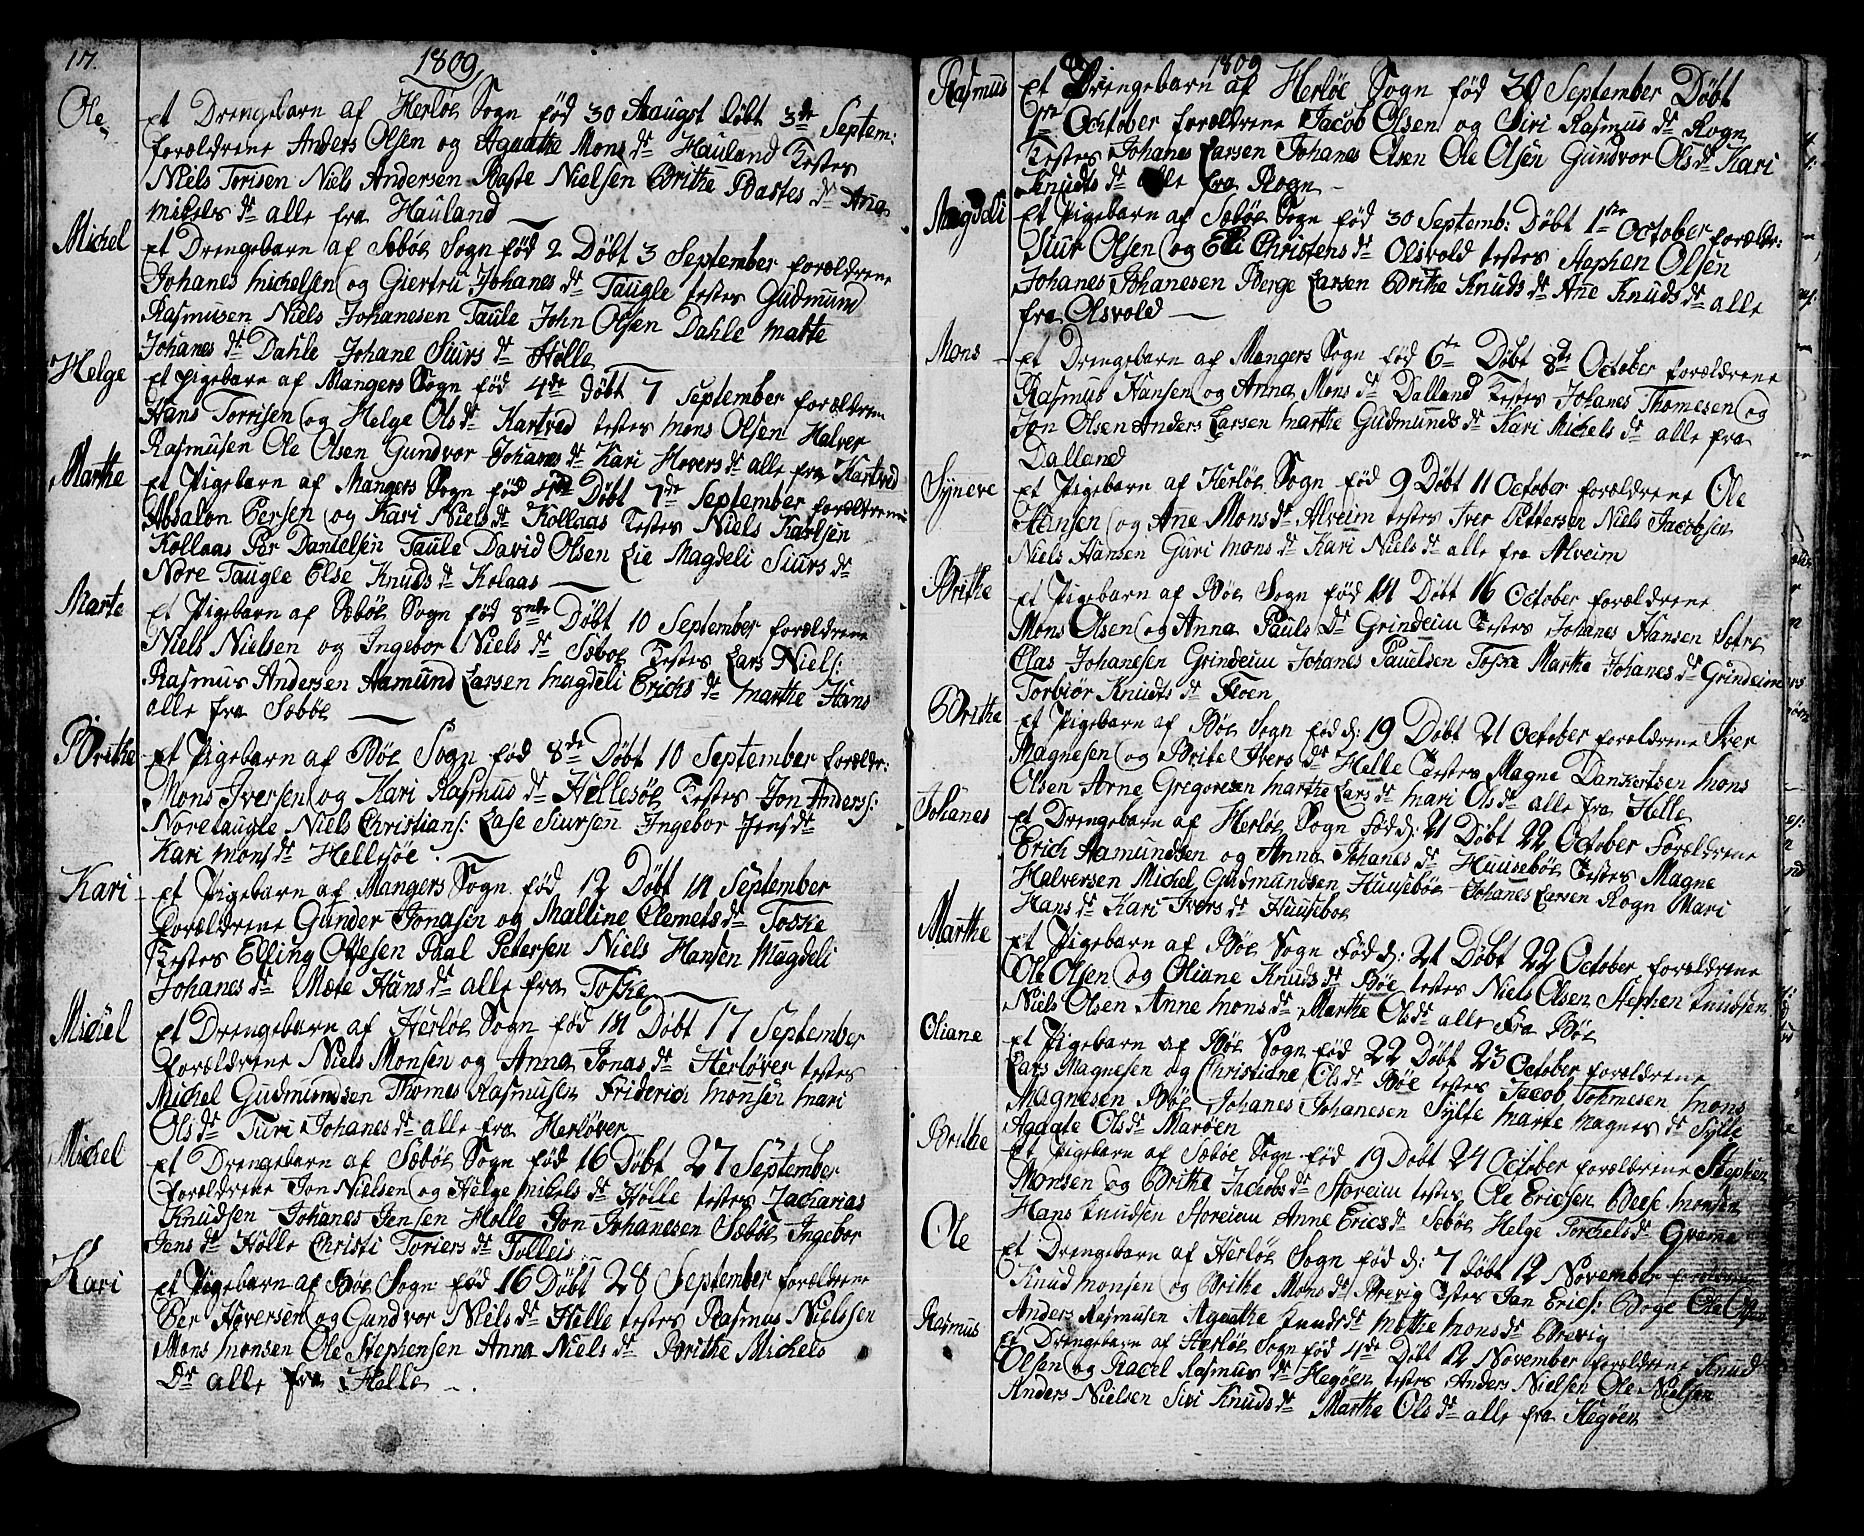 17.
1809
Ole
et Drengebarn af Herlöe Sogn föd 30 Augst Döbt 3de Septem:
forældrene Anders Olsen og Agaathe Mons dr Hauland testes
Niels Torisen Niels Andersen Baste Nielsen Brithe Bastes dr Ana
Mikels dr alle fra Hauland
Michel
et Drengebarn af Sæböe Sogn föd 2 Döbt 3 September forældrene
Johanes Michelsen og Giertru Johanes dr Taugle testes Gudmund
Rasmusen Niels Johanesen Taule John Olsen Dahle Matte
Johanes dr Dahle Johane Siurs dr Hölle
Helge
et Pigebarn af Mangers Sogn föd 4de Döbt 7 September forældrene
Hans Torrisen og Helge Ols dr Kartved testes Mons Olsen Halver
Rasmusen Ole Olsen Gundvor Johanes dr Kari Hovers dr alle fra Kartved
Marthe
et Pigebarn af Mangers Sogn föd 4de Döbt 7de September forældrene
Absalon Persen og Kari Niels dr Kollaas testes Niels Karlsen
Kollaas Per Danielsen Taule David Olsen Lie Magdeli Siurs dr
Nore Taugle Else Knuds dr Kolaas
Marte
et Pigebarn af Sæböe Sogn föd 8nde Döbt 10 September forældrene
Niels Nielsen og Ingebor Niels dr Söboe testes Lars Niels:
Rasmus Andersen Aamund Larsen Magdeli Erichs dr Marthe Hans
alle fra Söböe
Brithe
et Pigebarn af Böe Sogn föd 8de Döbt 10 September forælde:
Mons Iversen og Kari Rasmus dr Hellesöe testes Jon Anderss:
Noretaugle Niels Christians: Lase Siursen Ingebor Jens dr
Kari Mons dr Hellesöe
Kari
et Pigebarn af Mangers Sogn föd 12 Döbt 14 September
forældrene Gunder Jonasen og Malline Clemets dr Toske
testes Elling Ottesen Paal Petersen Niels Hansen Magdeli
Johanes dr Mete Hans dr alle fra Toske
Michel
et Drengebarn af Herlöe Sogn föd 14 Döbt 17 September
forældrene Niels Monsen og Anna Jonas dr Herlöver testes
Michel Gudmundsen Thomes Rasmusen Friderich Monsen Mari
Ols dr Turi Johanes dr alle fra Herlöver
Michel
et Drengebarn af Sæböe Sogn föd 16 Döbt 27 September
forældrene Jon Nielsen og Helge Mikels dr Hölle testes Zacharias
Knudsen Johanes Jensen Hölle Jon Johanesen Sæböe Ingebor
Jens dr Hölle Christi Toriers dr Tolleis
Kari
et Pigebarn af Böe Sogn föd 16 Döbt 28 September forældrene
Per Haversen og Gundvor Niels dr Helle testes Rasmus Nielssen
Mons Monsen Ole Stephensen Anna Niels dr Brithe Michels
Dr alle fra Helle
1809
Rasmus
et Drengebarn af Herlöe Sogn föd 30 September Döbt
1re October forældrene Jacob Olsen og Siri Rasmus dr Rogn
testes Johanes Larsen Johanes Olsen Ole Olsen Gundvor Ols dr Kari
Knudts dr alle fra Rogn
Magdeli
et Pigebarn af Söböe Sogn föd 30 Septemb: Döbt 1ste October forælde:
Siur Olsen og Elli Christens dr Olsvold testes Stephen Olsen
Johanes Johanesen Berge Larsen Brithe Knuds dr Ane Knuds dr alle
fra Olsvold
Mons
et Drengebarn af Mangers Sogn föd 6te Döbt 8de October forældrene
Rasmus Hansen og Anna Mons dr Dalland testes Johanes Thomesen og
Jon Olsen Anders Larsen Marthe Gudmunds dr Kari Michels dr alle fra
Dalland
Syneve
et Pigebarn af Herlöe Sogn föd 9 Döbt 11 October forældrene Ole
Hansen og Ane Mons dr Alveim testes Iver Pettersen Niels Jacobsen
Niels Hansen Guri Mons dr Kari Niels dr alle fra Alveim
Brithe
et Pigebarn af Böe Sogn föd 14 Döbt 16 October forældrene
Mons Olsen og Anna Pauls Dr Grindeim testes Johanes Hansen Setre
Clas Johanesen Grindeim Johanes Pauelsen Topra Marthe Johanes dr Grindeim
Torbiör Knudts dr Floen
Brithe
et Pigebarn af Böe Sogn föd d: 19 Döbt 21 October forældrene Iver
Magnesen og Brite Ivers dr Helle testes Magne Dankertsen Mons
Olsen Arne Gregoresen Marthe Lars dr Mari Ols dr alle fra Helle
Johanes
et Drengebarn af Herlöe Sogn föd d: 21 Döbt 22 October forældrene
Erich Aamundsen og Anna Johanes dr Huuseböe testes Magne
Halversen Michel Gudmundsen Huuseböe Johanes Larsen Rogn Mari
Hans dr Kari Ivers dr Huuseboe
Marthe
et Pigebarn af Böe Sogn föd d: 21 Döbt 22 October forældrene
Ole Olsen og Oliane Knuds dr Böe testes Niels Olsen Stephen Knudsen
Niels Olsen Anne Mons dr Marthe Ols dr alle fra Böe
Oliane
et Pigebarn af Böe Sogn föd 22 Döbt 23 October forældrene
Lars Magnesen og Christiane Ols dr Böe testes Jacob Tohmesen Mons
Magnesen Böe Johanes Johanesen Sylte Marte Magnes dr Sylte
Agaate Ols dr Maröen
Brithe
et Pigebarn af Sæböe Sogn föd 19 Döbt 24 October forældrene Stephen
Monsen og Brithe Jacobs dr Storeim testes Ole Ericsen Beese Monsen
Hans Knudsen Storeim Anne Erics dr Söböe Helge Torchels dr Qvame
Ole
et Drengebarn af Herlöe Sogn föd d: 7 Döbt 12 November forældrene
Knud Monsen og Brithe Mons dr Brevig testes Jan Erics: Boge Ole Olsen
Anders Rasmusen Agaathe Knuds dr Mathe Mons dr Brevig
Rasmus
et Drengebarn af Herlöe Sogn föd 4de Döbt 12 November forældrene Knud
Olsen og Racel Rasmus dr Hegöen testes Anders Nielsen Ole Nielsen
Anders Nielsen Siri Knuds dr Marthe Ols dr alle fra Hegöen